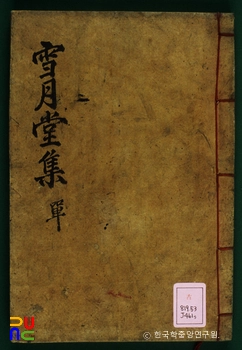 雪月堂集 單
二
819.53
ⓒ 한국학중앙연구원